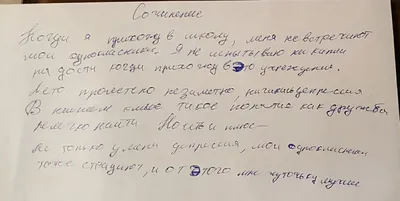 Сочинение
Когда я прихожу в школу, меня не встречают
мои одноклассники. Я не испытываю никакой
радости когда прихожу в это учреждение.
Лето пролетело незаметно, началась депрессия
В нашем классе такое понятие как дружба
нелегко найти Но есть и плюс –
Не только у меня депрессия, мои одноклассники
тоже страдают, и от этого мне чуточку лучше